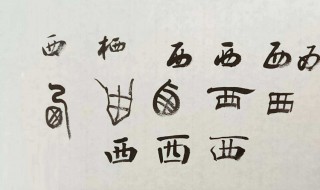 西 栖 西 西 西 西
西 西
西 西 西